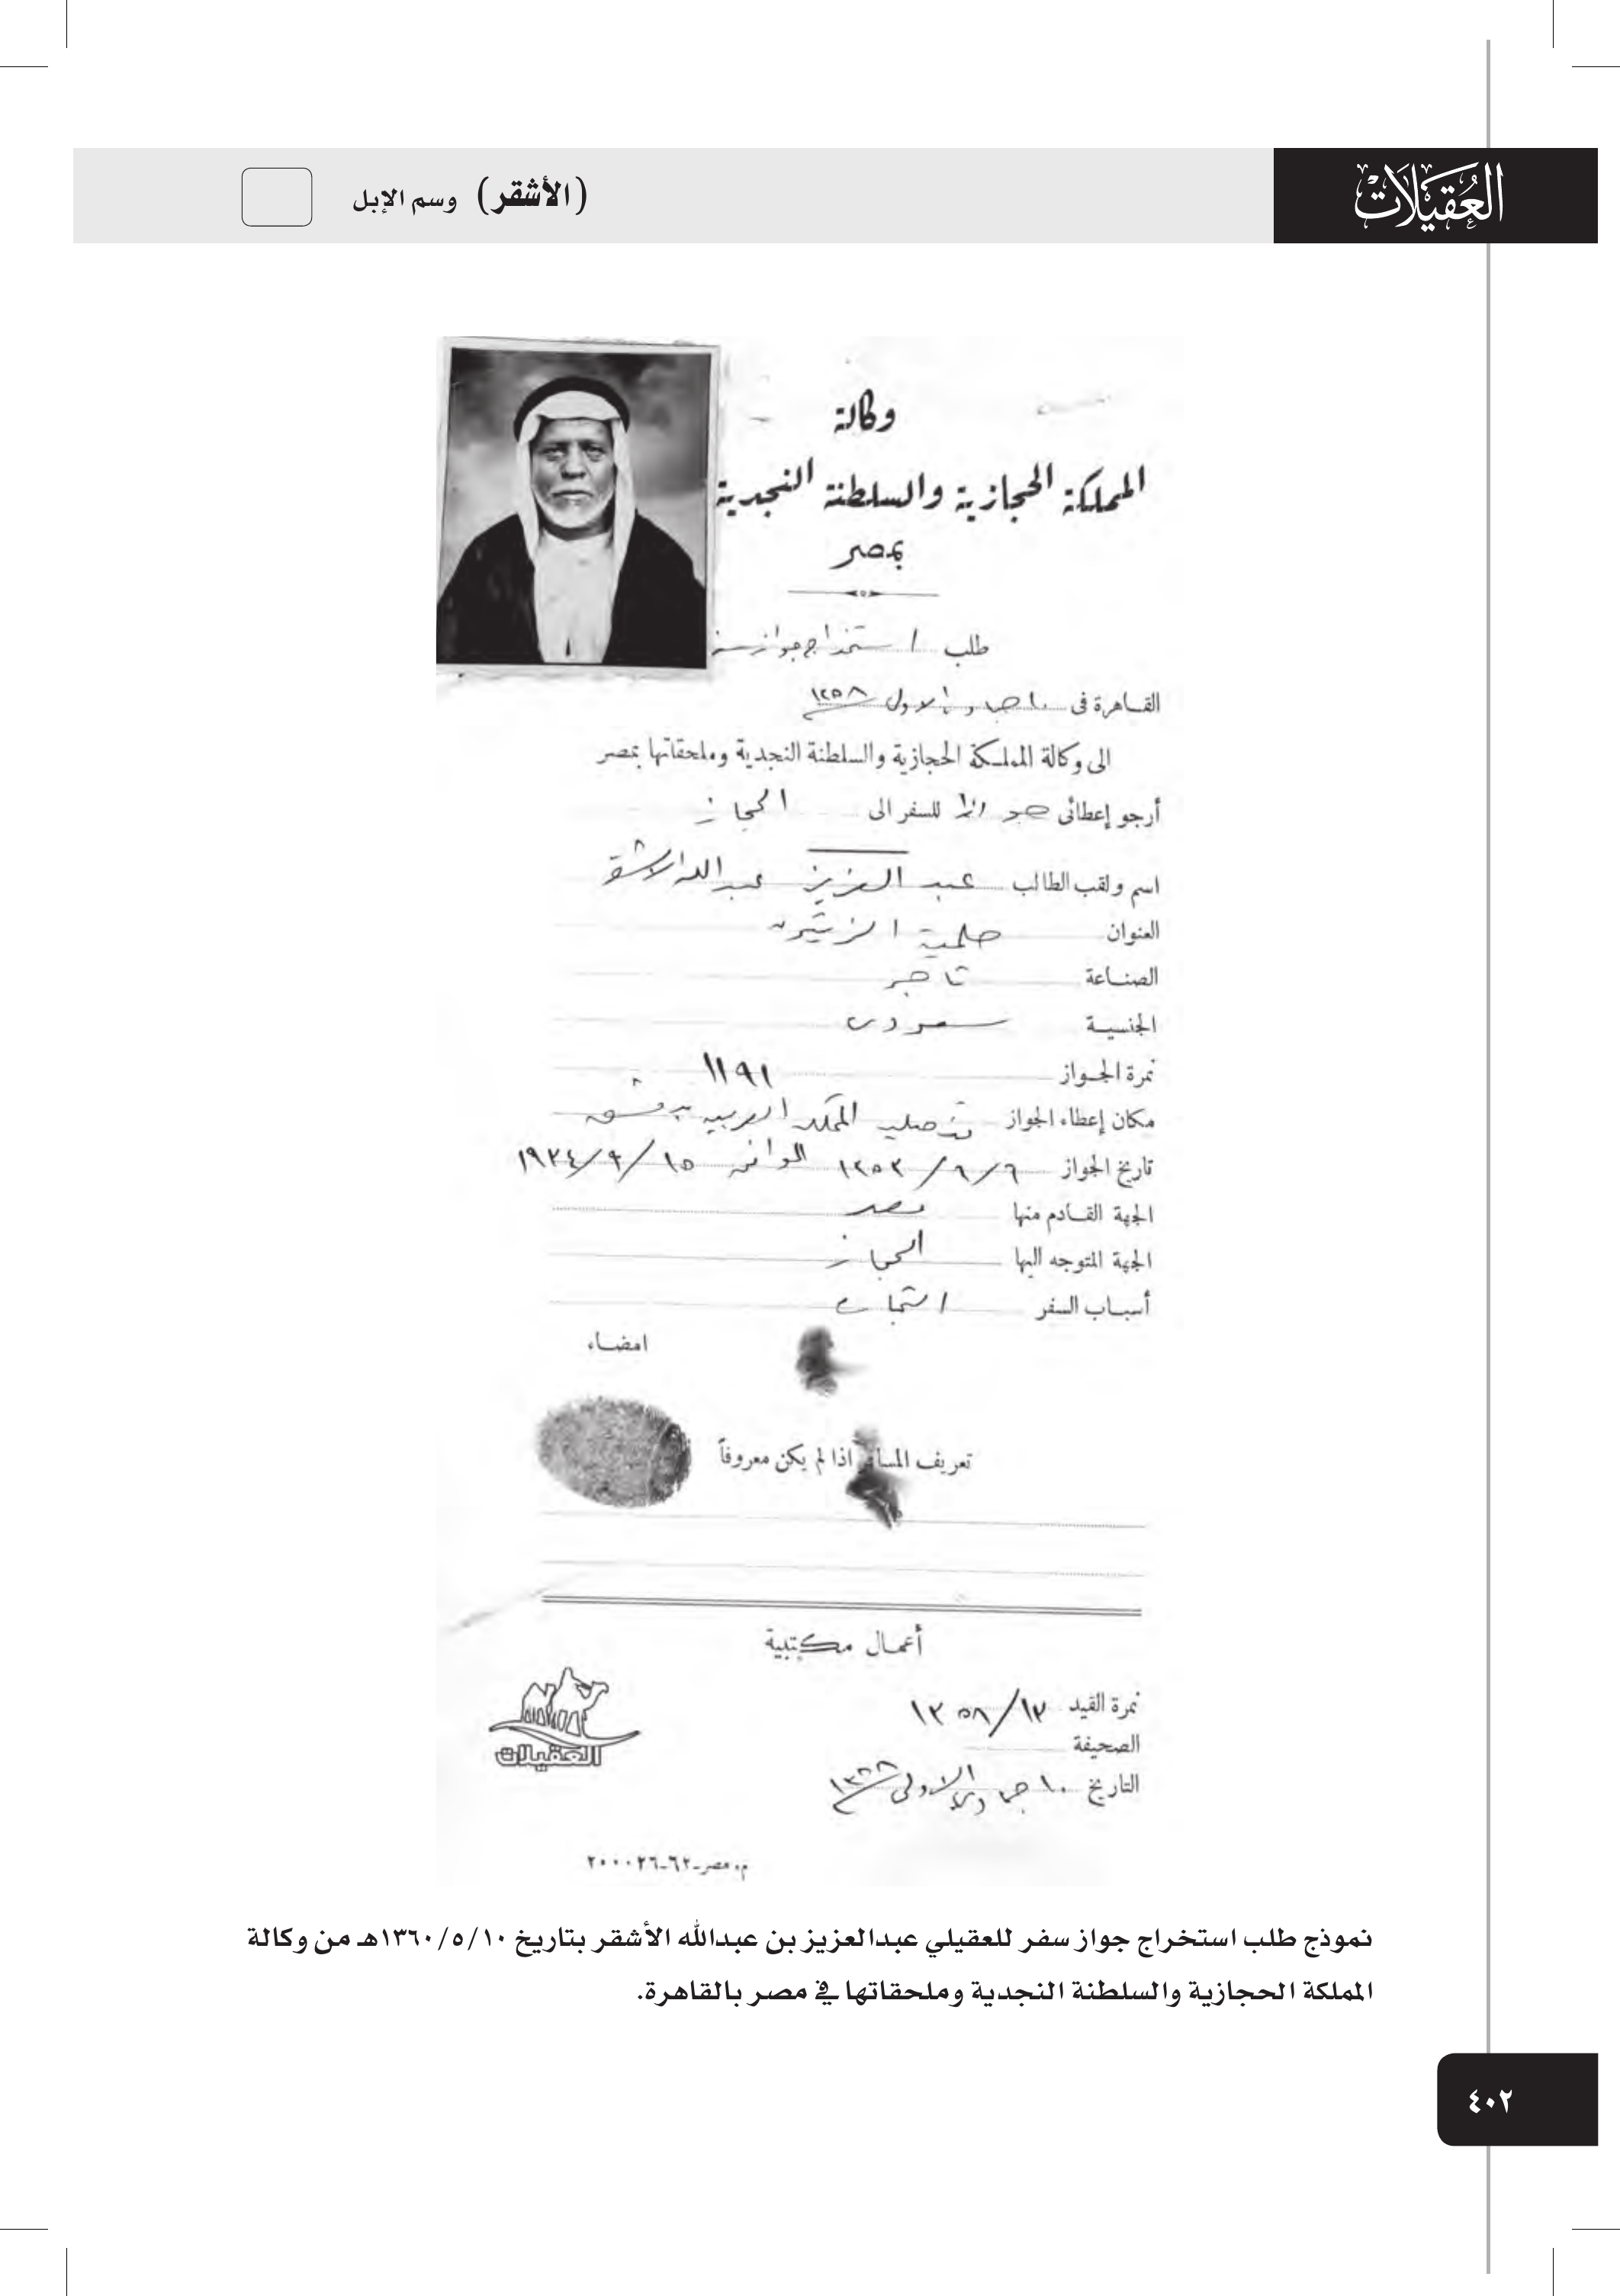 العُقَيْلَاتْ
(الأشقر) وسم الإبل
وكالة
المملكة الحجازية والسلطنة النجدية
بمصر
طلب استخراج جواز سفر
القاهرة فى ١٠ جماد الاول ١٣٥٨
الى وكالة المملكة الحجازية والسلطنة النجدية وملحقاتها بمصر
أرجو إعطائى جوازا للسفر الى الحجاز
اسم ولقب الطالب عبد العزيز عبد الله الاشقر
العنوان حلمية الزيتون
الصناعة تاجر
الجنسية سعودى
نمرة الجواز ١١٩١
مكان إعطاء الجواز قنصلية المملكة العربية بدمشق
تاريخ الجواز ٦/٦/١٣٥٣ الموافق ١٥/٩/١٩٣٤
الجهة القادم منها مصر
الجهة المتوجه اليها الحجاز
أسباب السفر
امضاء
تعريف المسافر اذا لم يكن معروفاً
أعمال مكتبية
نمرة القيد ١٣/١٣٥٨
الصحيفة
التاريخ ١٠ جمادى الاولى ١٣٥٨
العقيلات
م. مصر-٦٢-٢٦-٢٠٠٠
نموذج طلب استخراج جواز سفر للعقيلي عبدالعزيز بن عبدالله الأشقر بتاريخ ١٣٦٠/٥/١٠هـ من وكالة
المملكة الحجازية والسلطنة النجدية وملحقاتها في مصر بالقاهرة.
٤٠٢